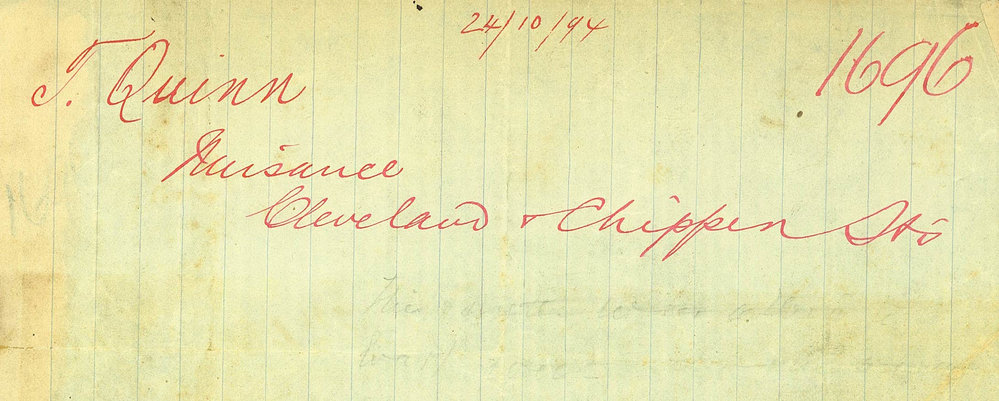 24/10/94
T. Quinn
1696
Nuisance
Cleveland & Chippen Sts